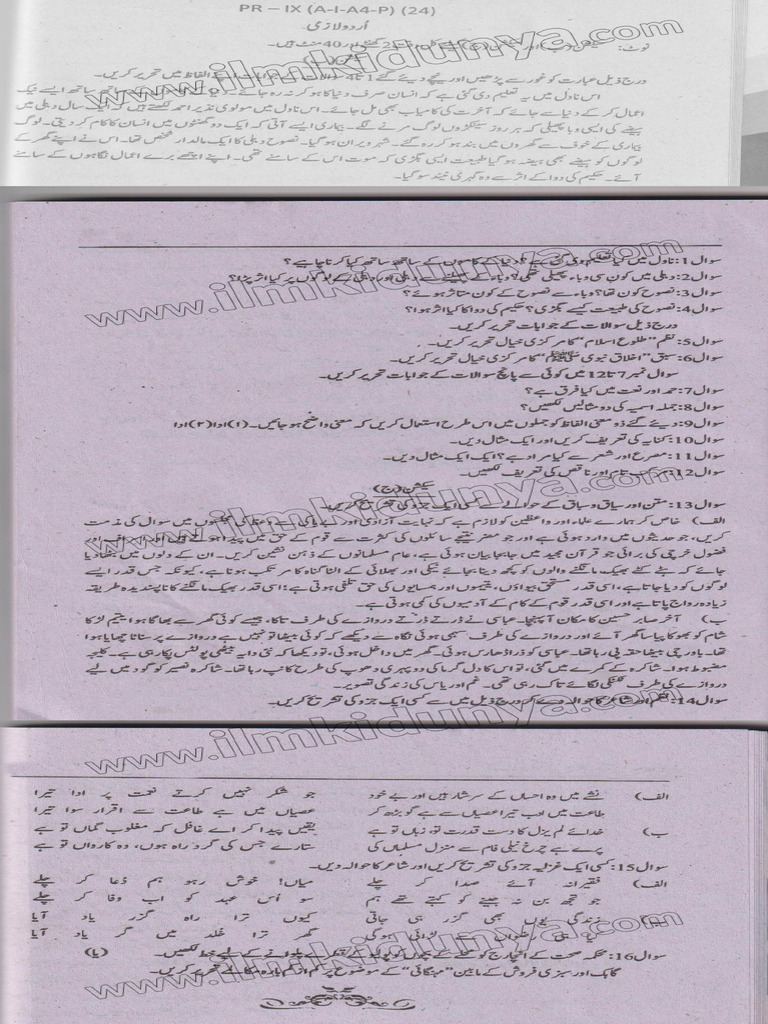 PR – IX (A-I-A4-P) (24)
اُردو لازمی
نوٹ: سیکشن
www.ilmkidunya.com
درج ذیل عبارت کو غور سے پڑھیں اور نیچے دیئے گئے 1 تا 4 الفاظ میں تحریر کریں۔
اس ناول میں یہ تعلیم دی گئی ہے کہ انسان صرف دنیا کا ہو کر نہ رہ جائے ساتھ ساتھ ایسے نیک
اعمال کر کے دنیا سے جائے کہ آخرت کی کامیاب بھی مل جائے۔ اس ناول میں مولوی نذیر احمد لکھتے ہیں کہ ایک سال دہلی میں
ہیضے کی ایسی وبا پھیلی کہ ہر روز سینکڑوں لوگ مرنے لگے۔ بیماری ایسے آتی کہ ایک دو گھنٹوں میں انسان کا کام کر دیتی۔ لوگ
بیماری کے خوف سے گھروں میں بند ہو کر رہ گئے۔ شہر ویران ہو گیا۔ نصوح دہلی کا ایک مالدار شخص تھا۔ اس نے اپنے گھر کے
لوگوں کو ہیضے بھی ہیضہ ہو گیا طبیعت ایسی بگڑی کہ موت اس کے سامنے تھی۔ اپنے اچھے برے اعمال نگاہوں کے سامنے
آئے۔ حکیم کی دوا کے اثر سے وہ گہری نیند سو گیا۔
سوال 1: ناول میں کیا تعلیم دی گئی ہے؟ دنیا کے کاموں کے ساتھ ساتھ کیا کرنا چاہیے؟
سوال 2: دہلی میں کون سی وباء پھیلی تھی؟ وباء کے پھیلنے سے دہلی اور دہلی کے لوگوں پر کیا اثر پڑا؟
سوال 3: نصوح کون تھا؟ وباء سے نصوح کے کون متاثر ہوئے؟
www.ilmkidunya.com
سوال 4: نصوح کی طبیعت کیسے بگڑی؟ حکیم کی دوا کا کیا اثر ہوا؟
درج ذیل سوالات کے جوابات تحریر کریں۔
سوال 5: نظم "طلوع اسلام" کا مرکزی خیال تحریر کریں۔
سوال 6: سبق "اخلاق نبوی ﷺ" کا مرکزی خیال تحریر کریں۔
سوال نمبر 7 تا 12 میں کوئی سے پانچ سوالات کے جوابات تحریر کریں۔
سوال 7: حمد اور نعت میں کیا فرق ہے؟
سوال 8: جملہ اسمیہ کی دو مثالیں لکھیں؟
سوال 9: دیئے گئے ذو معنی الفاظ کو جملوں میں اس طرح استعمال کریں کہ معنی واضح ہو جائیں۔ (۱) ادا (۲) ادا
سوال 10: کنایہ کی تعریف کریں اور ایک مثال دیں۔
سوال 11: مصرع اور شعر سے کیا مراد ہے؟ ایک ایک مثال دیں۔
سوال 12: مرکب تام اور ناقص کی تعریف لکھیں۔
سیکشن (ج)
سوال 13: متن اور سیاق و سباق کے حوالے سے کسی ایک جزو کی تشریح کریں۔
www.ilmkidunya.com
الف) خاص کر ہمارے علماء اور واعظین کو لازم ہے کہ نہایت آزادی اور میں سوال کی مذمت
کریں، جو حدیثوں میں وارد ہوئی ہے اور جو مضر نتیجے سائلوں کی کثرت سے قوم کے حق میں پیدا
فضول خرچی کی برائی جو قرآن مجید میں جا بجا بیان ہوئی ہے، عام مسلمانوں کے ذہن نشین کریں۔ ان کے دلوں میں بٹھا دیا
جائے کہ ہٹے کٹے بھیک مانگنے والوں کو کچھ دینا بجائے نیکی اور بھلائی کے الٹا گناہ کا مرتکب ہونا ہے، کیونکہ جس قدر ایسے
لوگوں کو دیا جاتا ہے، اسی قدر مستحق بیواؤں، یتیموں اور ہمسایوں کی حق تلفی ہوتی ہے: اسی قدر بھیک مانگنے کا ناپسندیدہ طریقہ
زیادہ رواج پاتا ہے اور اسی قدر قوم کے کام کے آدمیوں کی کمی ہوتی ہے۔
ب) آخر صابر حسین کا مکان آ پہنچا۔ عباسی نے ڈرتے ڈرتے دروازے کی طرف تاکا، جیسے کوئی گھر سے بھاگا ہوا یتیم لڑکا
شام کو بھوکا پیاسا گھر آئے اور دروازے کی طرف سہمی ہوئی نگاہ سے دیکھے کہ کوئی بیٹھا تو نہیں ہے دروازے پر سناٹا چھایا ہوا
تھا۔ باورچی بیٹھا حقہ پی رہا تھا۔ عباسی کو ذرا ڈھارس ہوئی۔ گھر میں داخل ہوئی، تو دیکھا کہ نئی دایہ بیٹھی پولٹس پکا رہی ہے۔ کلیجہ
مضبوط ہوا۔ شاکرہ کے کمرے میں گئی، تو اس کا دل گرما کی دوپہری دھوپ کی طرح کانپ رہا تھا۔ شاکرہ نصیر کو گود میں لیے
دروازے کی طرف ٹکٹکی لگائے تاک رہی تھی۔ غم اور یاس کی زندہ تصویر۔
سوال 14: نظم اور شاعر کا حوالہ دے کر درج ذیل میں سے کسی ایک جزو کی تشریح کریں۔
www.ilmkidunya.com
الف) نشے میں وہ احساں کے سرشار ہیں اور بے خود جو شکر نہیں کرتے نعمت پر ادا تیرا
طاعت میں ادب تیرا عصیاں سے ہے گو بڑھ کر عصیاں میں ہے طاعت سے اقرار سوا تیرا
ب) خدائے لم یزل کا دست قدرت تو، زباں تو ہے یقیں پیدا کر اے غافل کہ مغلوب گماں تو ہے
پرے ہے چرخ نیلی فام سے منزل مسلماں کی ستارے جس کی گرد راہ ہوں، وہ کارواں تو ہے
سوال 15: کسی ایک غزلیہ جزو کی تشریح کریں اور شاعر کا حوالہ دیں۔
الف) فقیرانہ آئے صدا کر چلے میاں! خوش رہو ہم دُعا کر چلے
جو تجھ بن نہ جینے کو کہتے تھے ہم سو اُس عہد کو اب وفا کر چلے
زندگی یوں بھی گزر ہی جاتی کیوں ترا راہ گزر یاد آیا
کیا ہی رضواں سے لڑائی ہوگی گھر ترا خلد میں گر یاد آیا
www.ilmkidunya.com
سوال 16: محکمہ صحت کے انچارج کو محلے کے بچوں کو پولیو کے قطرے پلوانے کے لیے خط لکھیں۔ (یا)
گاہک اور سبزی فروش کے مابین "مہنگائی" کے موضوع پر کم از کم بارہ مکالمے تحریر کریں۔